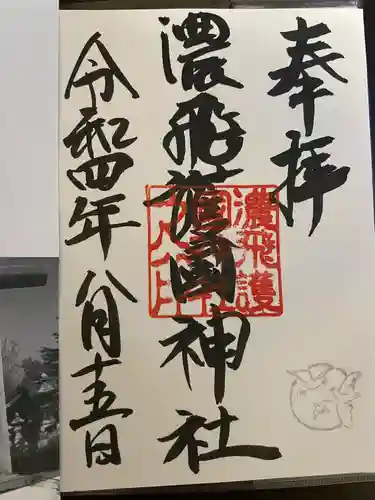 奉拝
濃飛護國神社
令和四年八月十五日
濃飛護